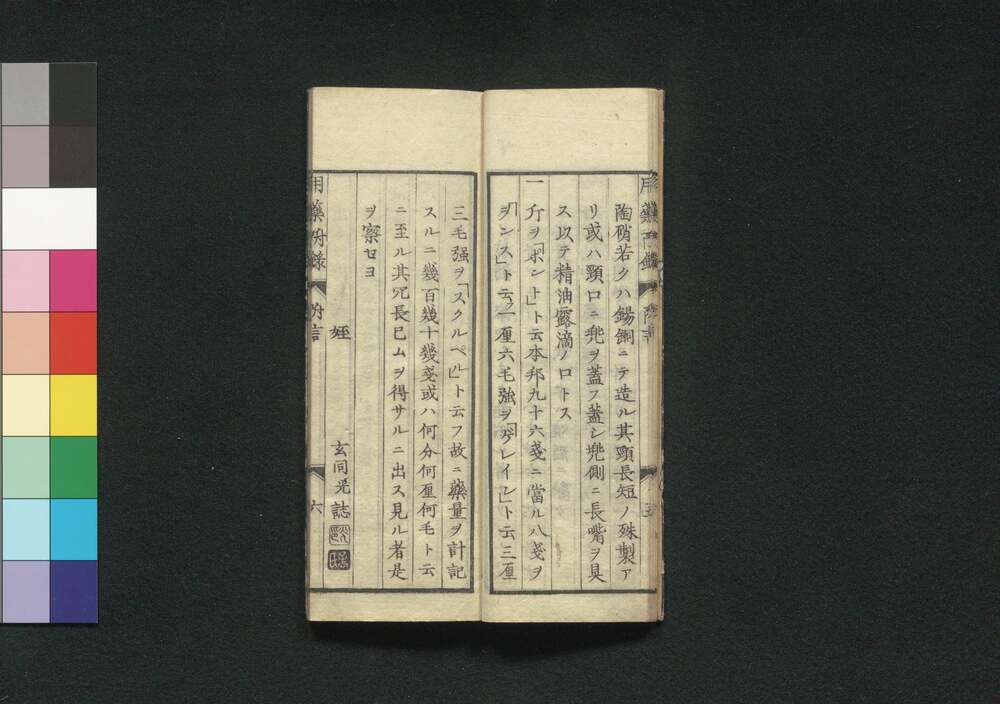 陶硝若クハ錫銅ニテ造ル其頸長短ノ殊製ア
リ或ハ頸口ニ兠ヲ蓋フ蓋シ兠側ニ長嘴ヲ具
ス以テ精油露滴ノ口トス
一斤ヲ「ポント」ト云本邦九十六戔ニ當ル八戔ヲ
「ヲンス」ト云フ一厘六毛強ヲ「ゲレイン」ト云三厘
三毛强ヲ「スクルペル」ト云フ故ニ藥量ヲ計記
スルニ幾百幾十幾戔或ハ何分何厘何毛ト云
ニ至ル其冗長已ムヲ得サルニ出ス見ル者是
ヲ察セヨ
姪
玄同光誌
用藥附錄
附言
六